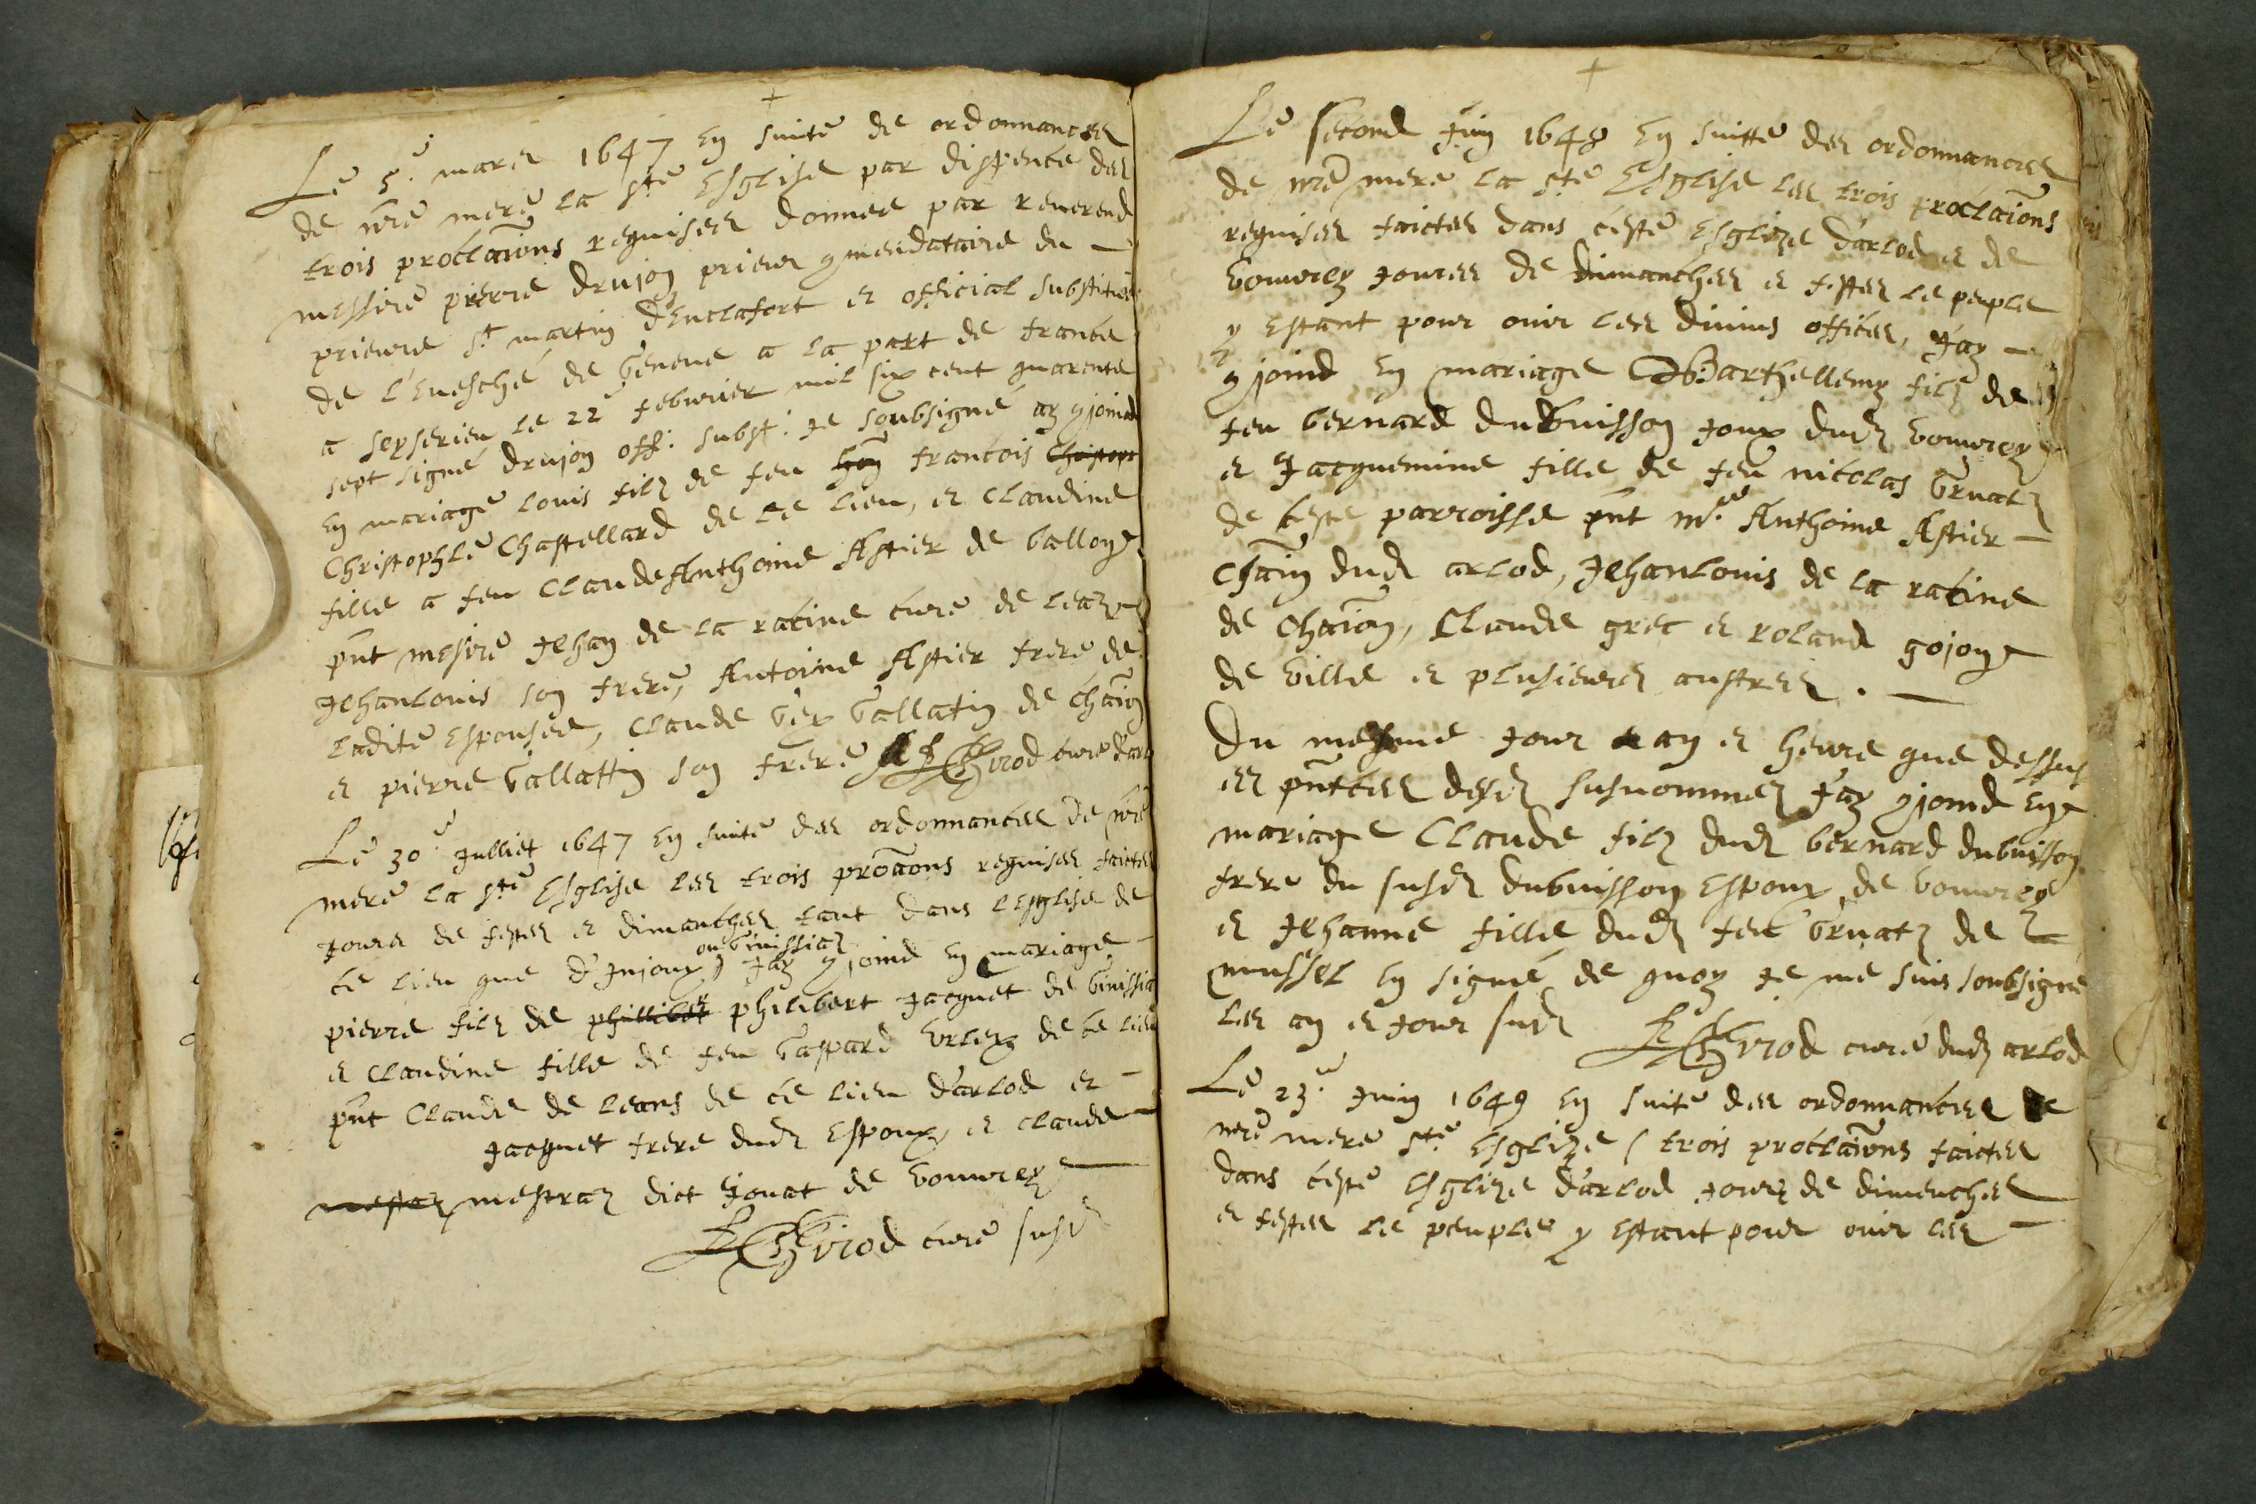 Le 5e mars 1647 en suitte de ordonnances
de nre mere la ste Esglise par dispence des
trois proclaõns requises donnee par reverend
messire pierre drujon prieur commendataire du
prieure st martin d'Enclafort et official substitué
de l'Evesché de Geneve a la part de france
a seyserieu le 22e febvrier mil six cent quarente
sept signé drujon off: subst: Je soubsigné ay conjoinct
en mariage Louis filz de feu hon francois Christople
Christophle Chastellard de ce lieu, et Claudine
fille a feu Claude Anthoine Astier de ballon
pnt mesire Jehan de la racine cure de leaz
Jehanlouis son frere, Antoine Astier frere de
ladite espousee, Claude Gex Gallatin de chaõn
et pierre Gallattin son frere Girod cure d'arlod
Le 30e Julliet 1647 en suite des ordonnances de nre
mere la ste Esglise les trois procaõns requises faictes
Jours de festes et dimanches tant dans lesglise de
ou Ginissiaz
ce lieu que d'Injoux, J'ay conjoind en mariage
pierre filz de phillibert philibert Jacquet de Ginissia
et Claudine fille de feu Gaspard de ce lieu
pnt Claude de leans de ce lieu d'arlod et
Jacquet frere dudt espoux, et claude
mestraz mestraz dict Jovat de vouvrey
Girod cure susdt
Le second Juin 1648 en suitte des ordonnances
de nre mere la ste Esglise les trois proclaõns
requises faictes dans ceste Esglize d'arlod et de
vouvrey Joures de dimanches et festes le peuple
y estant pour ouir les divins offices, J'ay
conjoind en mariage Barthellemy filz de
feu bernard dubuisson Joux dudt vouvrey
et Jacquemine fille de feu nicolas Gruatz
de ceste parroisse pnt mre Anthoine Astier
chaõn dudt arlod, Jehanlouis de la racine
de chaõn, Claude grec et roland gojon
de ville et plusieurs austres.
Du mesme Jour an et heure que dessus
es pntces desdt susnommez J'ay conjoind en
mariage Claude filz dudt bernard dubuisson
frere du susdt dubuisson espoux de vouvrey
et Jehanne fille dudt feu Gruatz de
mussel en signé de quoy Je me suis soubsigné
les an et Jour susdt Girod curé dudt arlod
Le 23e Juin 1649 en suite des ordonnances de
nre mere ste Esglize / trois proclaõns faictes
dans ceste Esglize d'arlod Jours de dimenches
et festes le peuple y estant pour ouir les